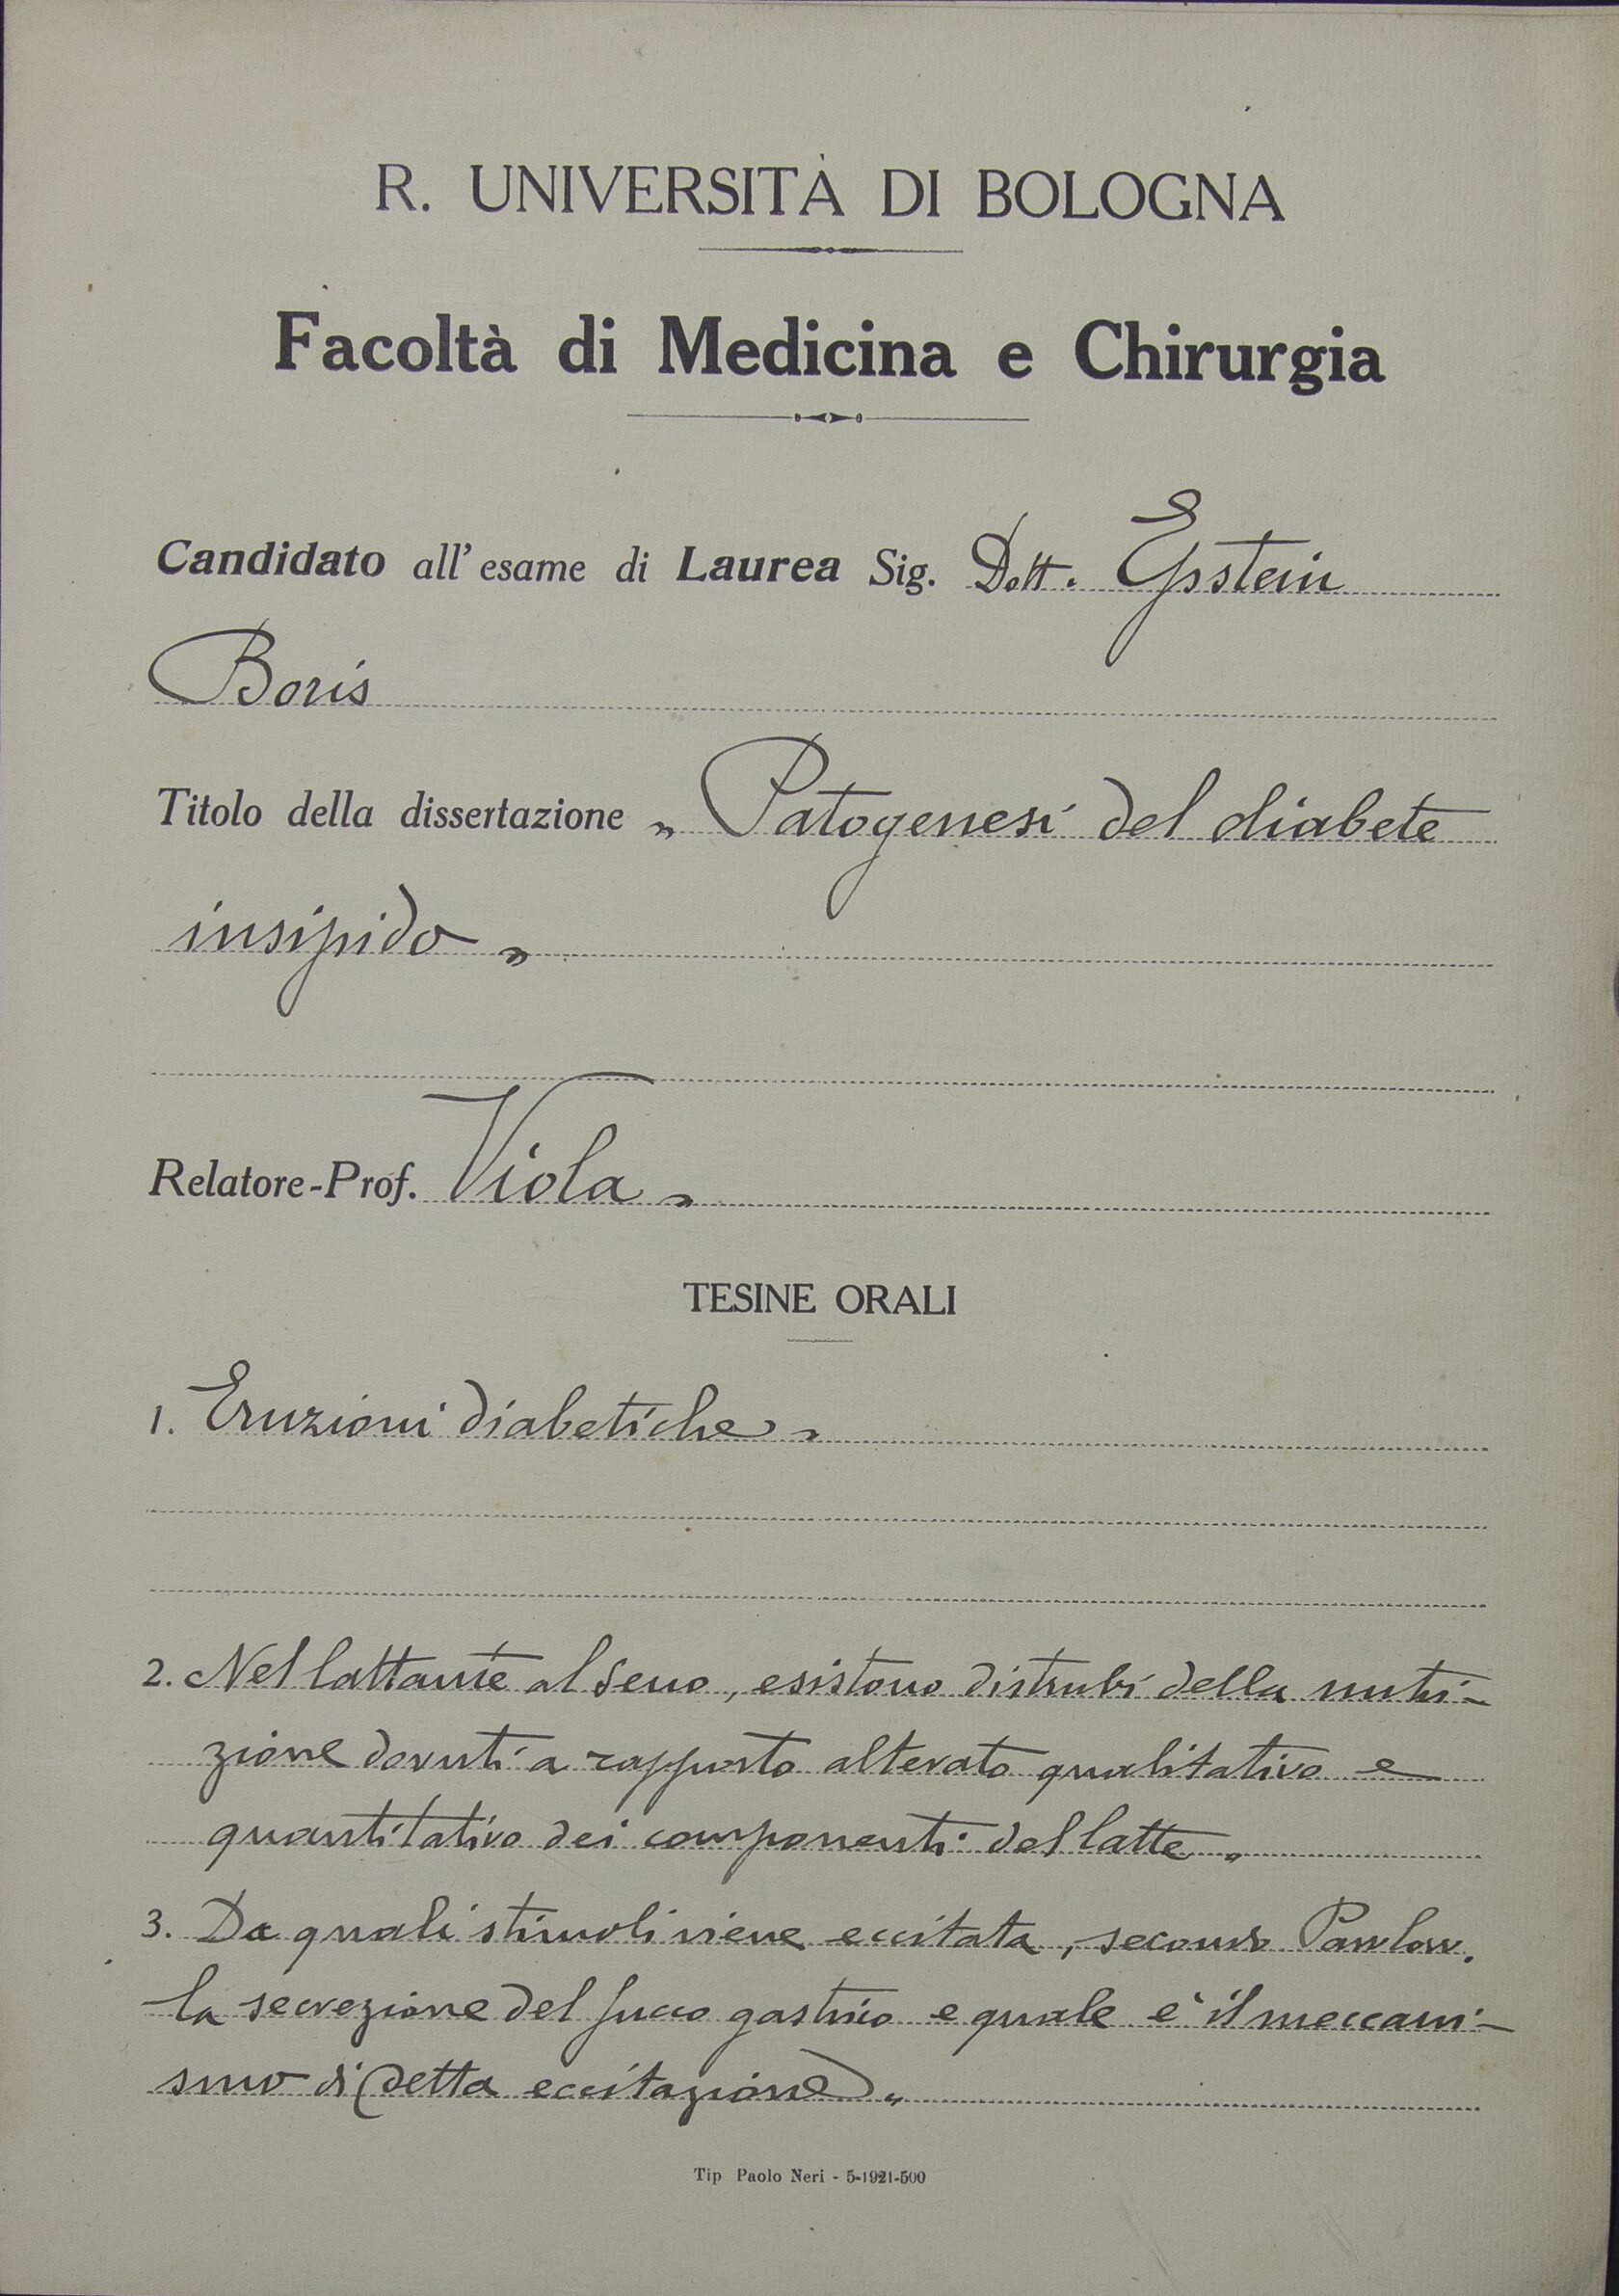 R. UNIVERSITÀ DI BOLOGNA
Facoltà di Medicina e Chirurgia
Candidato all'esame di Laurea Sig. Dott. Epstein
Boris
Titolo della dissertazione „ Patogenesi del diabete
insipido „
Relatore-Prof. Viola „
TESINE ORALI
1. Eruzioni diabetiche „
2. Nel lattante al seno, esistono disturbi della nutri-
zione dovuti a rapporto alterato qualitativo e
quantitativo dei componenti del latte „
3. Da quali stimoli viene eccitata, secondo Pawlow,
la secrezione del succo gastrico e quale è il meccani-
smo di detta eccitazione „
Tip Paolo Neri - 5-1921-500